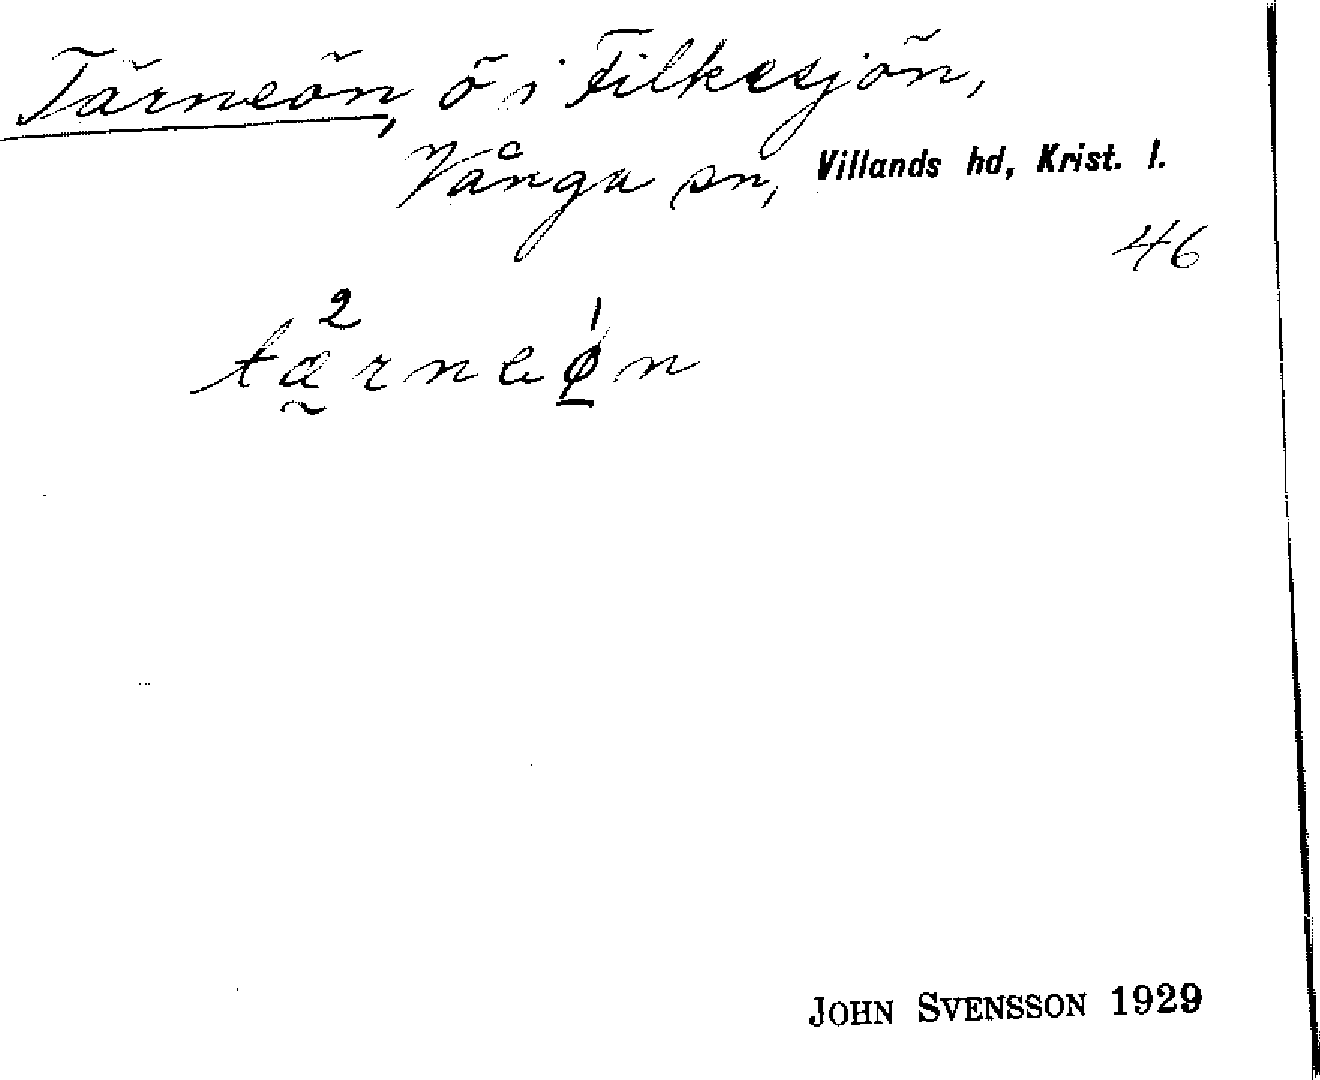 Tärneön, ö i Filkesjön,
Vånga sn, Villands hd, Krist. l.
46
tæ̰²rneǿ̱n
JOHN SVENSSON 1929